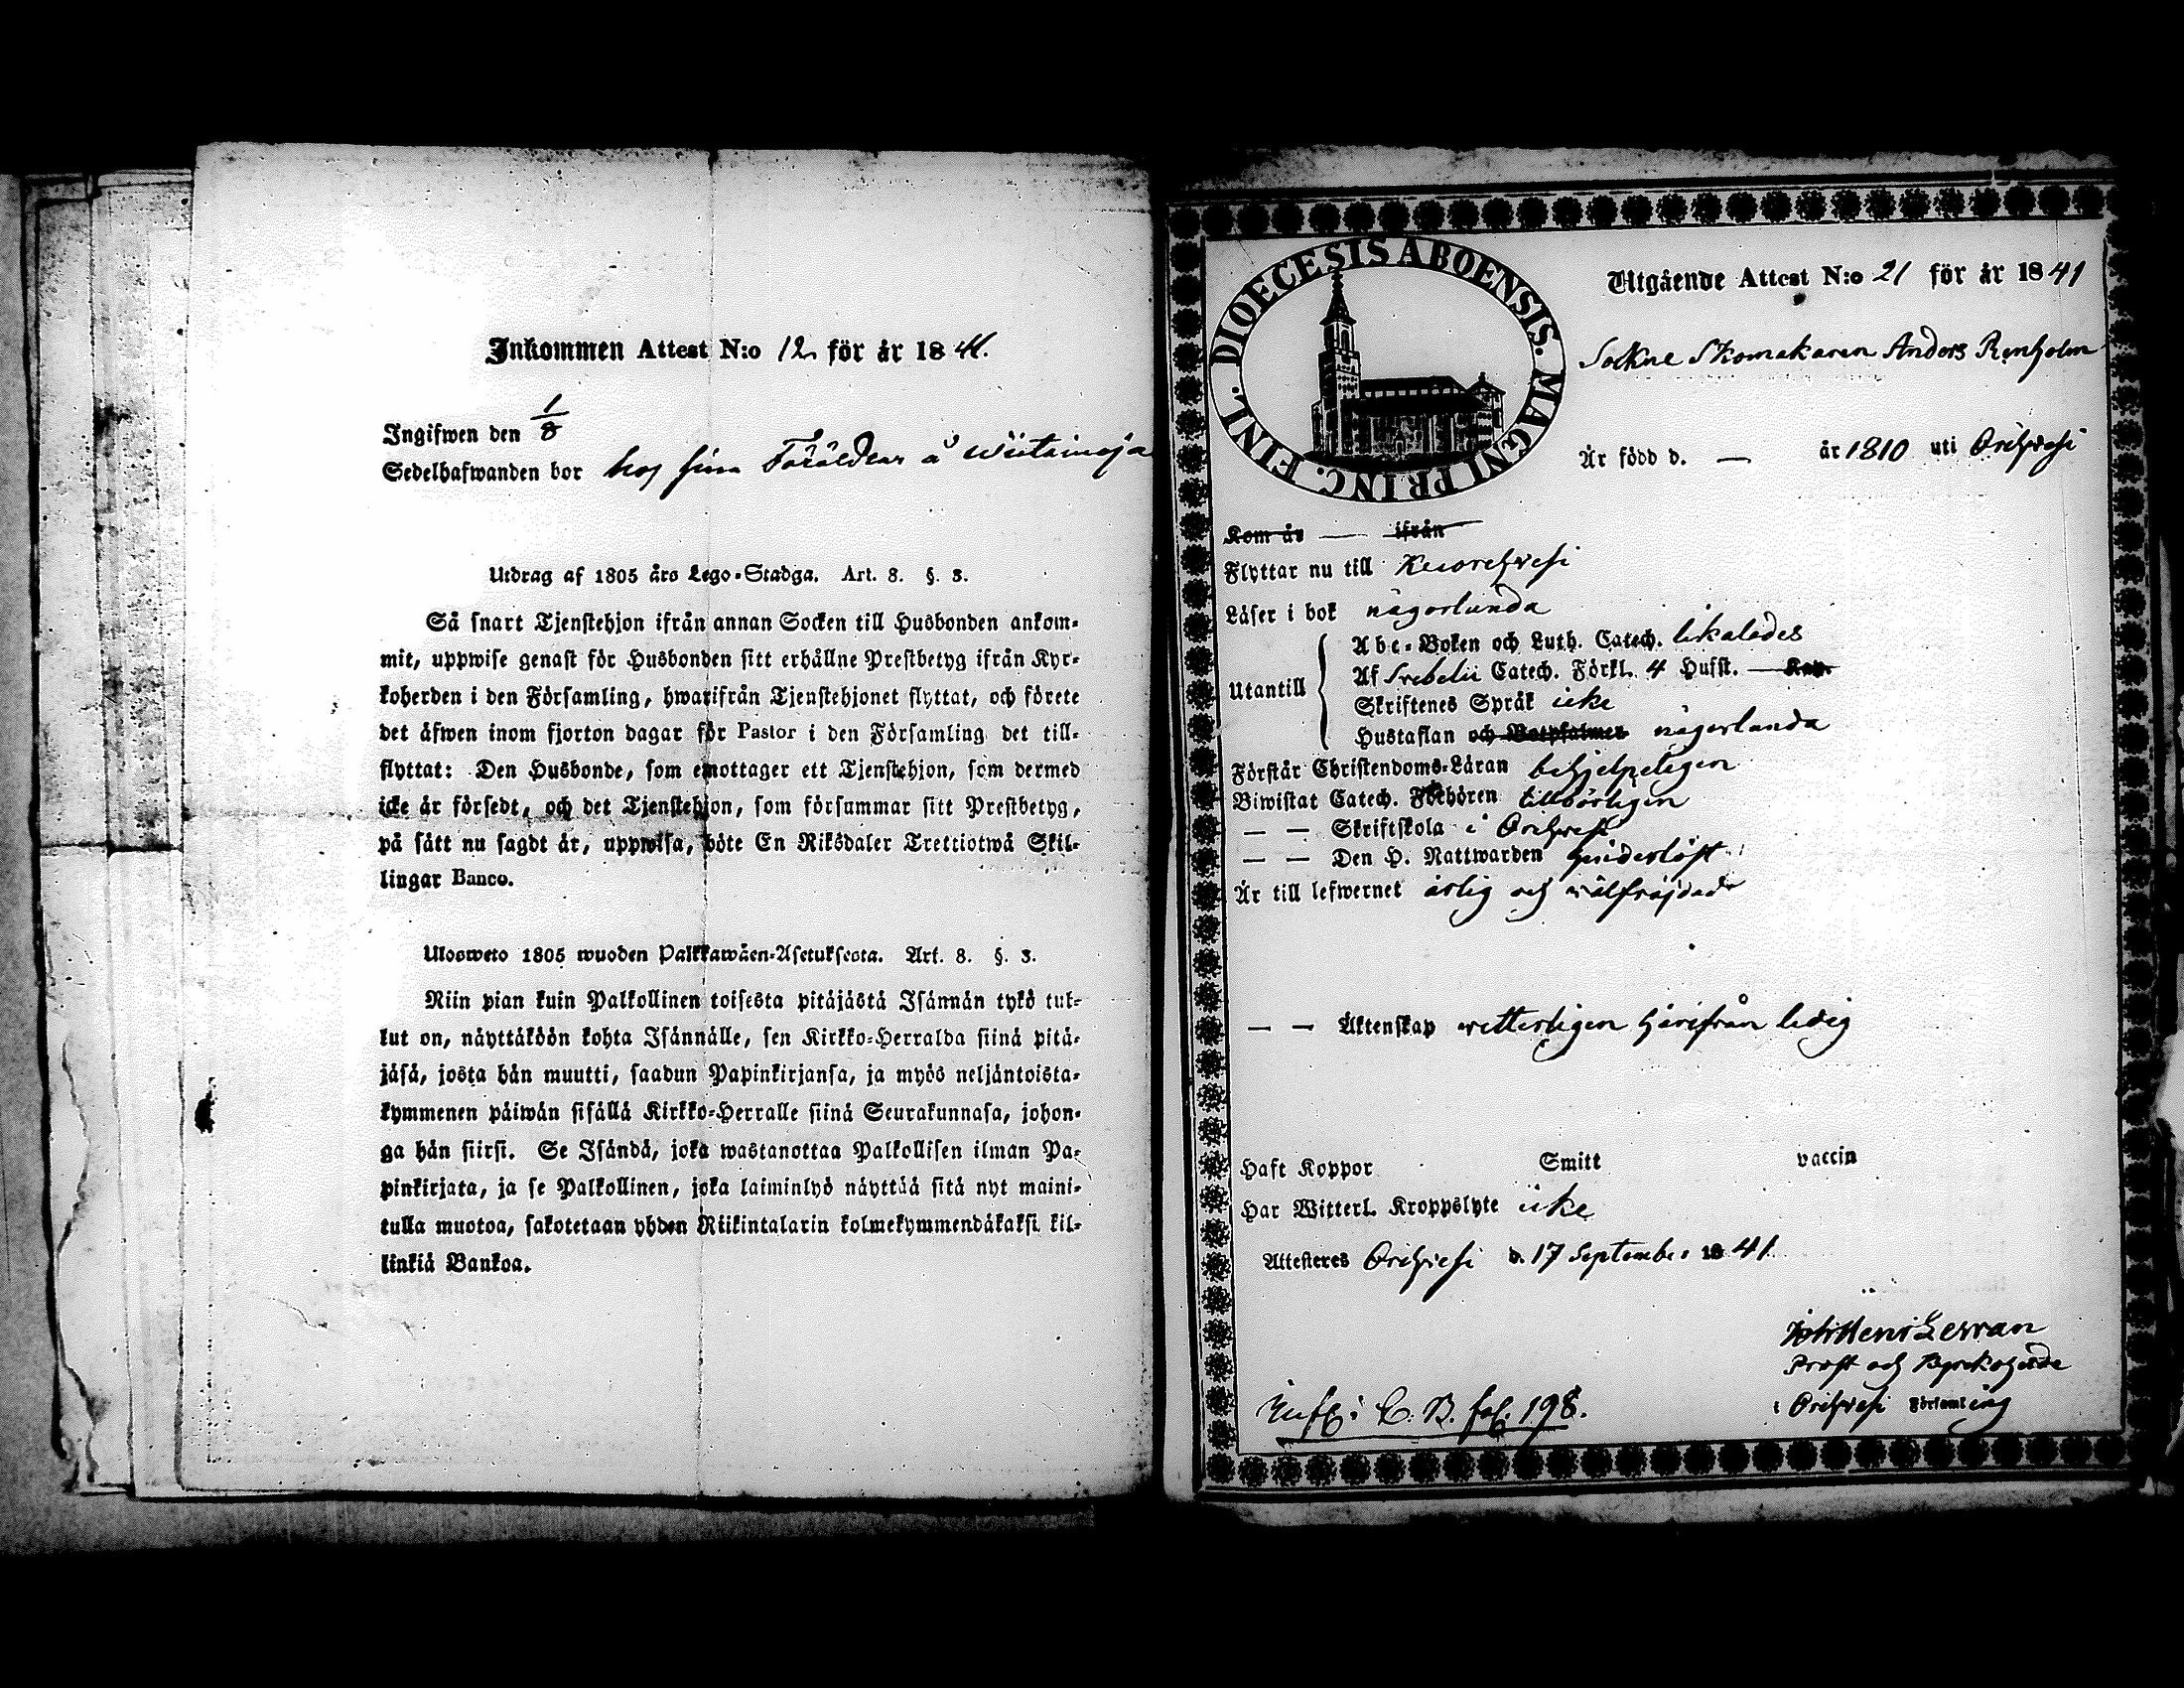 Inkommen Attest N:o 12 för år 1841.
Ingifwen den 1/8
Sedelhafwanden bor hos sina Föräldrar å
Utdrag af 1805 års Lego-Stadga. Art. 8. §. 3.
Så snart Tjenstehjon ifrån annan Socken till Husbonden ankom-
mit, uppwise genast för Husbonden sitt erhållne Prestbetyg ifrån Kyr-
koherden i den Församling, hwarifrån Tjenstehjonet flyttat, och förete
det äfwen inom fjorton dagar för Pastor i den Församling det till-
flyttat: Den Husbonde, som emottager ett Tjenstehjon, som dermed
icke är försedt, och det Tjenstehjon, som försummar sitt Prestbetyg,
på sätt nu sagdt är, uppwisa, böte En Riksdaler Trettiotwå Skil-
lingar Banco.
Ulosweto 1805 wuoden Palkkawäen-Asetuksesta. Art. 8. §. 3.
Niin pian kuin Palkollinen toisesta pitäjästä Isännän tykö tul-
lut on, näyttäköön kohta Isännälle, sen Kirkko-Herralda siinä pitä-
jäsä, josta hän muutti, saadun Papinkirjansa, ja myös neljäntoista-
kymmenen päiwän sisällä Kirkko-Herralle siinä Seurakunnasa, johon-
ga hän siirsi. Se Isändä, joka wastanottaa Palkollisen ilman Pa-
pinkirjata, ja se Palkollinen, joka laiminlyö näyttää sitä nyt maini-
tulla muotoa, sakotetaan yhden Riikintalarin kolmekymmendäkaksi kil-
linkiä Bankoa.
DIOECESIS ABOENSIS. MAGNI PRINC. FINL.
Utgående Attest N:o 21 för år 1841
Sockne Skomakaren Anders Renholm
Är född d. — år 1810 uti Orihvesi
Kom år — ifrån
Flyttar nu till Keuru
Läser i bok någorlunda
Utantill
Abc-Boken och Luth. Catech. likaledes
Af Svebelii Catech. Förkl. 4 Hufst. — Kap.
Skriftenes Språk icke
Hustaflan och Botpsalmer någorlunda
Förstår Christendoms-Läran behjelpeligen
Biwistat Catech. Förhören tillbörligen
— — Skriftskola i Orihvesi
— — Den H. Nattwarden hinderlöst
Är till lefwernet ärlig och wälfräjdad
— — Äktenskap vetterligen härifrån ledig
Haft Koppor Smitt vaccin
Har Witterl. Kroppslyte icke
Attesteres Orihvesi d. 17 September 1841
Prost och Kyrkoherde
i Orihvesi Församling
C. B. fol. 198.